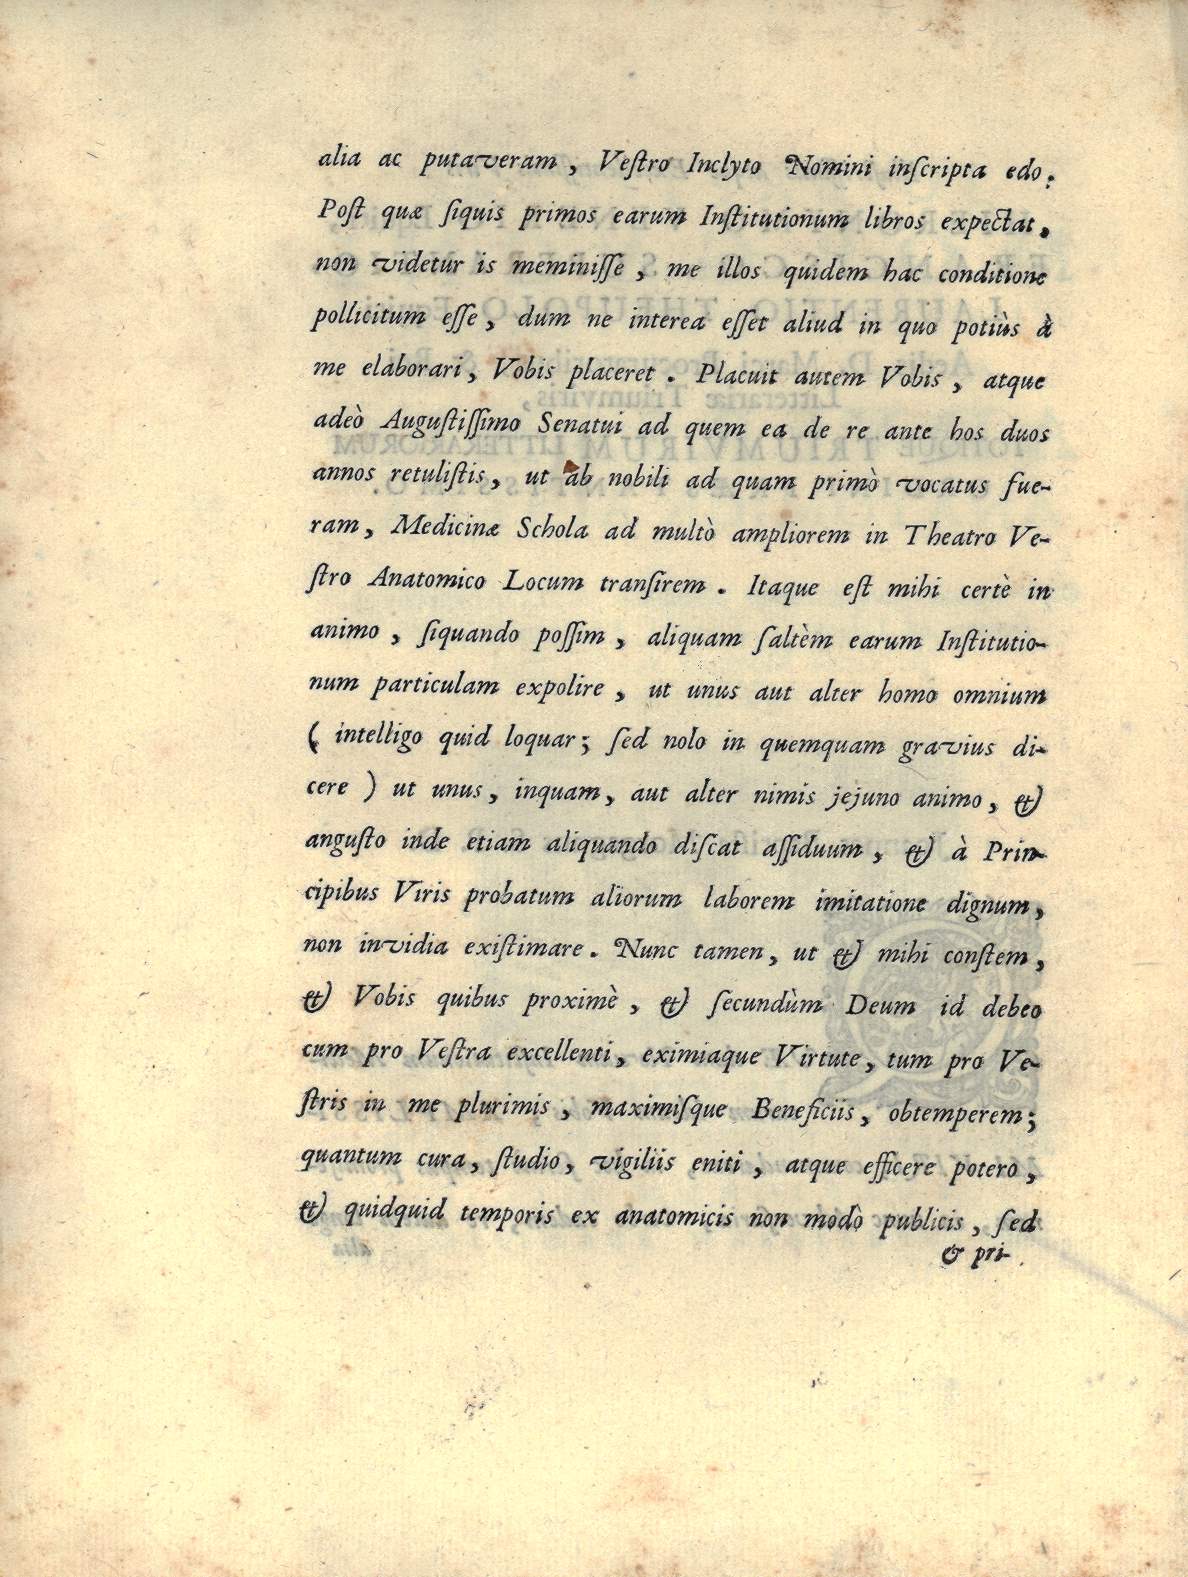 alia ac putaveram, Veſtro Inclyto Nomini inſcripta edo.
Poſt quæ ſiquis primos earum Inſtitutionum libros expectat,
non videtur is meminiſſe, me illos quidem hac conditione
pollicitum eſſe, dum ne interea eſſet aliud in quo potiùs à
me elaborari, Vobis placeret. Placuit autem Vobis, atque
adeò Auguſtiſſimo Senatui ad quem ea de re ante hos duos
annos retuliſtis, ut ab nobili ad quam primò vocatus fue-
ram, Medicinæ Schola ad multò ampliorem in Theatro Ve-
ſtro Anatomico Locum tranſirem. Itaque eſt mihi certè in
animo, ſiquando poſſim, aliquam ſaltèm earum Inſtitutio-
num particulam expolire, ut unus aut alter homo omnium
( intelligo quid loquar; ſed nolo in quemquam gravius di-
cere ) ut unus, inquam, aut alter nimis jejuno animo, &
anguſto inde etiam aliquando diſcat aſſiduum, & à Prin-
cipibus Viris probatum aliorum laborem imitatione dignum,
non invidia exiſtimare. Nunc tamen, ut & mihi conſtem,
& Vobis quibus proximè, & ſecundùm Deum id debeo
cum pro Veſtra excellenti, eximiaque Virtute, tum pro Ve-
ſtris in me plurimis, maximiſque Beneficiis, obtemperem;
quantum cura, ſtudio, vigiliis eniti, atque efficere potero,
& quidquid temporis ex anatomicis non modò publicis, ſed
& pri-